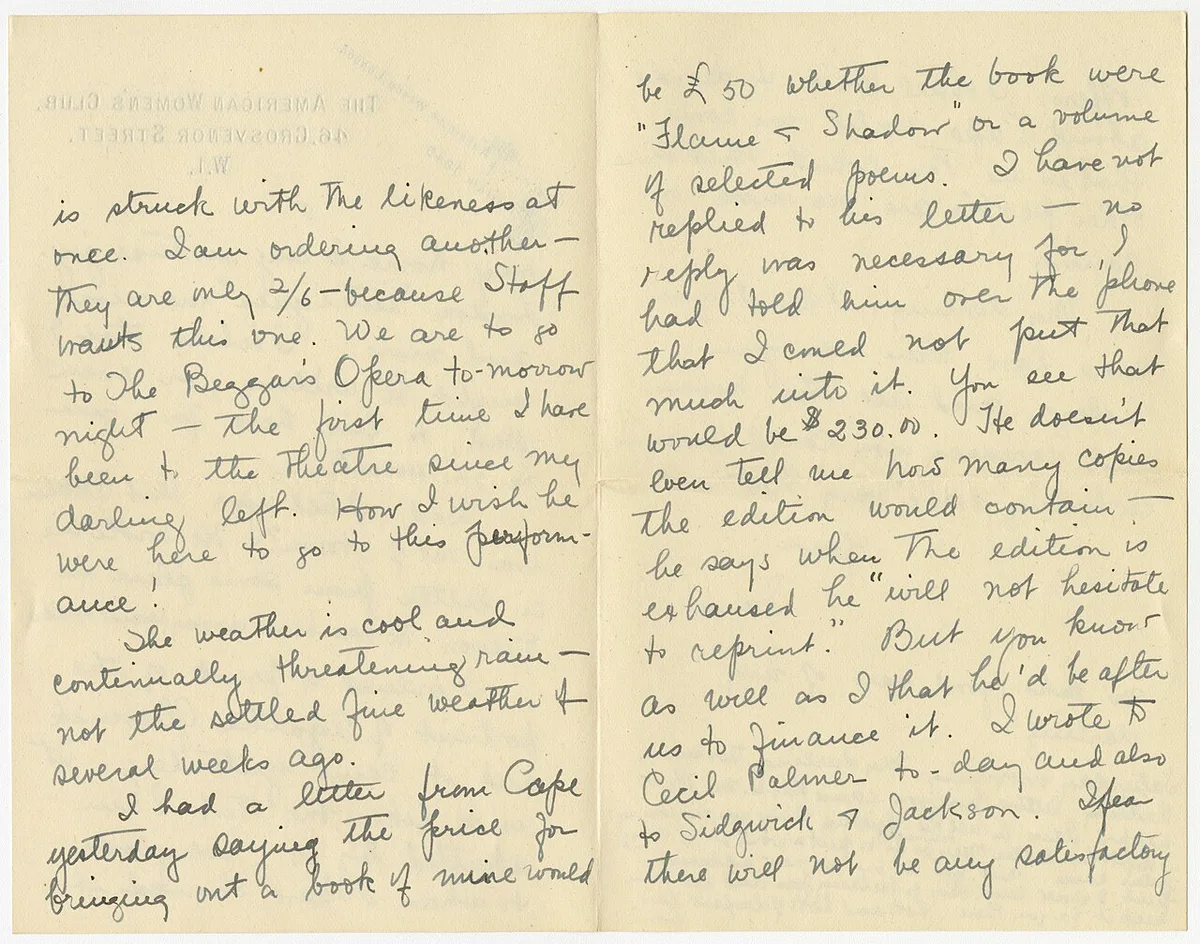 THE AMERICAN WOMEN'S CLUB.
46, GROSVENOR STREET.
W.1.
is struck with the likeness at
once. I am ordering another —
they are only 2/6 — because Staff
wants this one. We are to go
to The Beggar's Opera to-morrow
night — the first time I have
been to the theatre since my
darling left. How I wish he
were here to go to this perform-
ance!
The weather is cool and
continually threatening rain —
not the settled fine weather of
several weeks ago.
I had a letter from Cape
yesterday saying the price for
bringing out a book of mine would
be £50 whether the book were
"Flame & Shadow" or a volume
of selected poems. I have not
replied to his letter — no
reply was necessary for, I
had told him over the 'phone
that I could not put that
much into it. You see that
would be $230.00. He doesn't
even tell me how many copies
the edition would contain —
he says when the edition is
exhaused he "will not hesitate
to reprint." But you know
as well as I that he'd be after
us to finance it. I wrote to
Cecil Palmer to-day and also
to Sidgwick & Jackson. I fear
there will not be any satisfactory